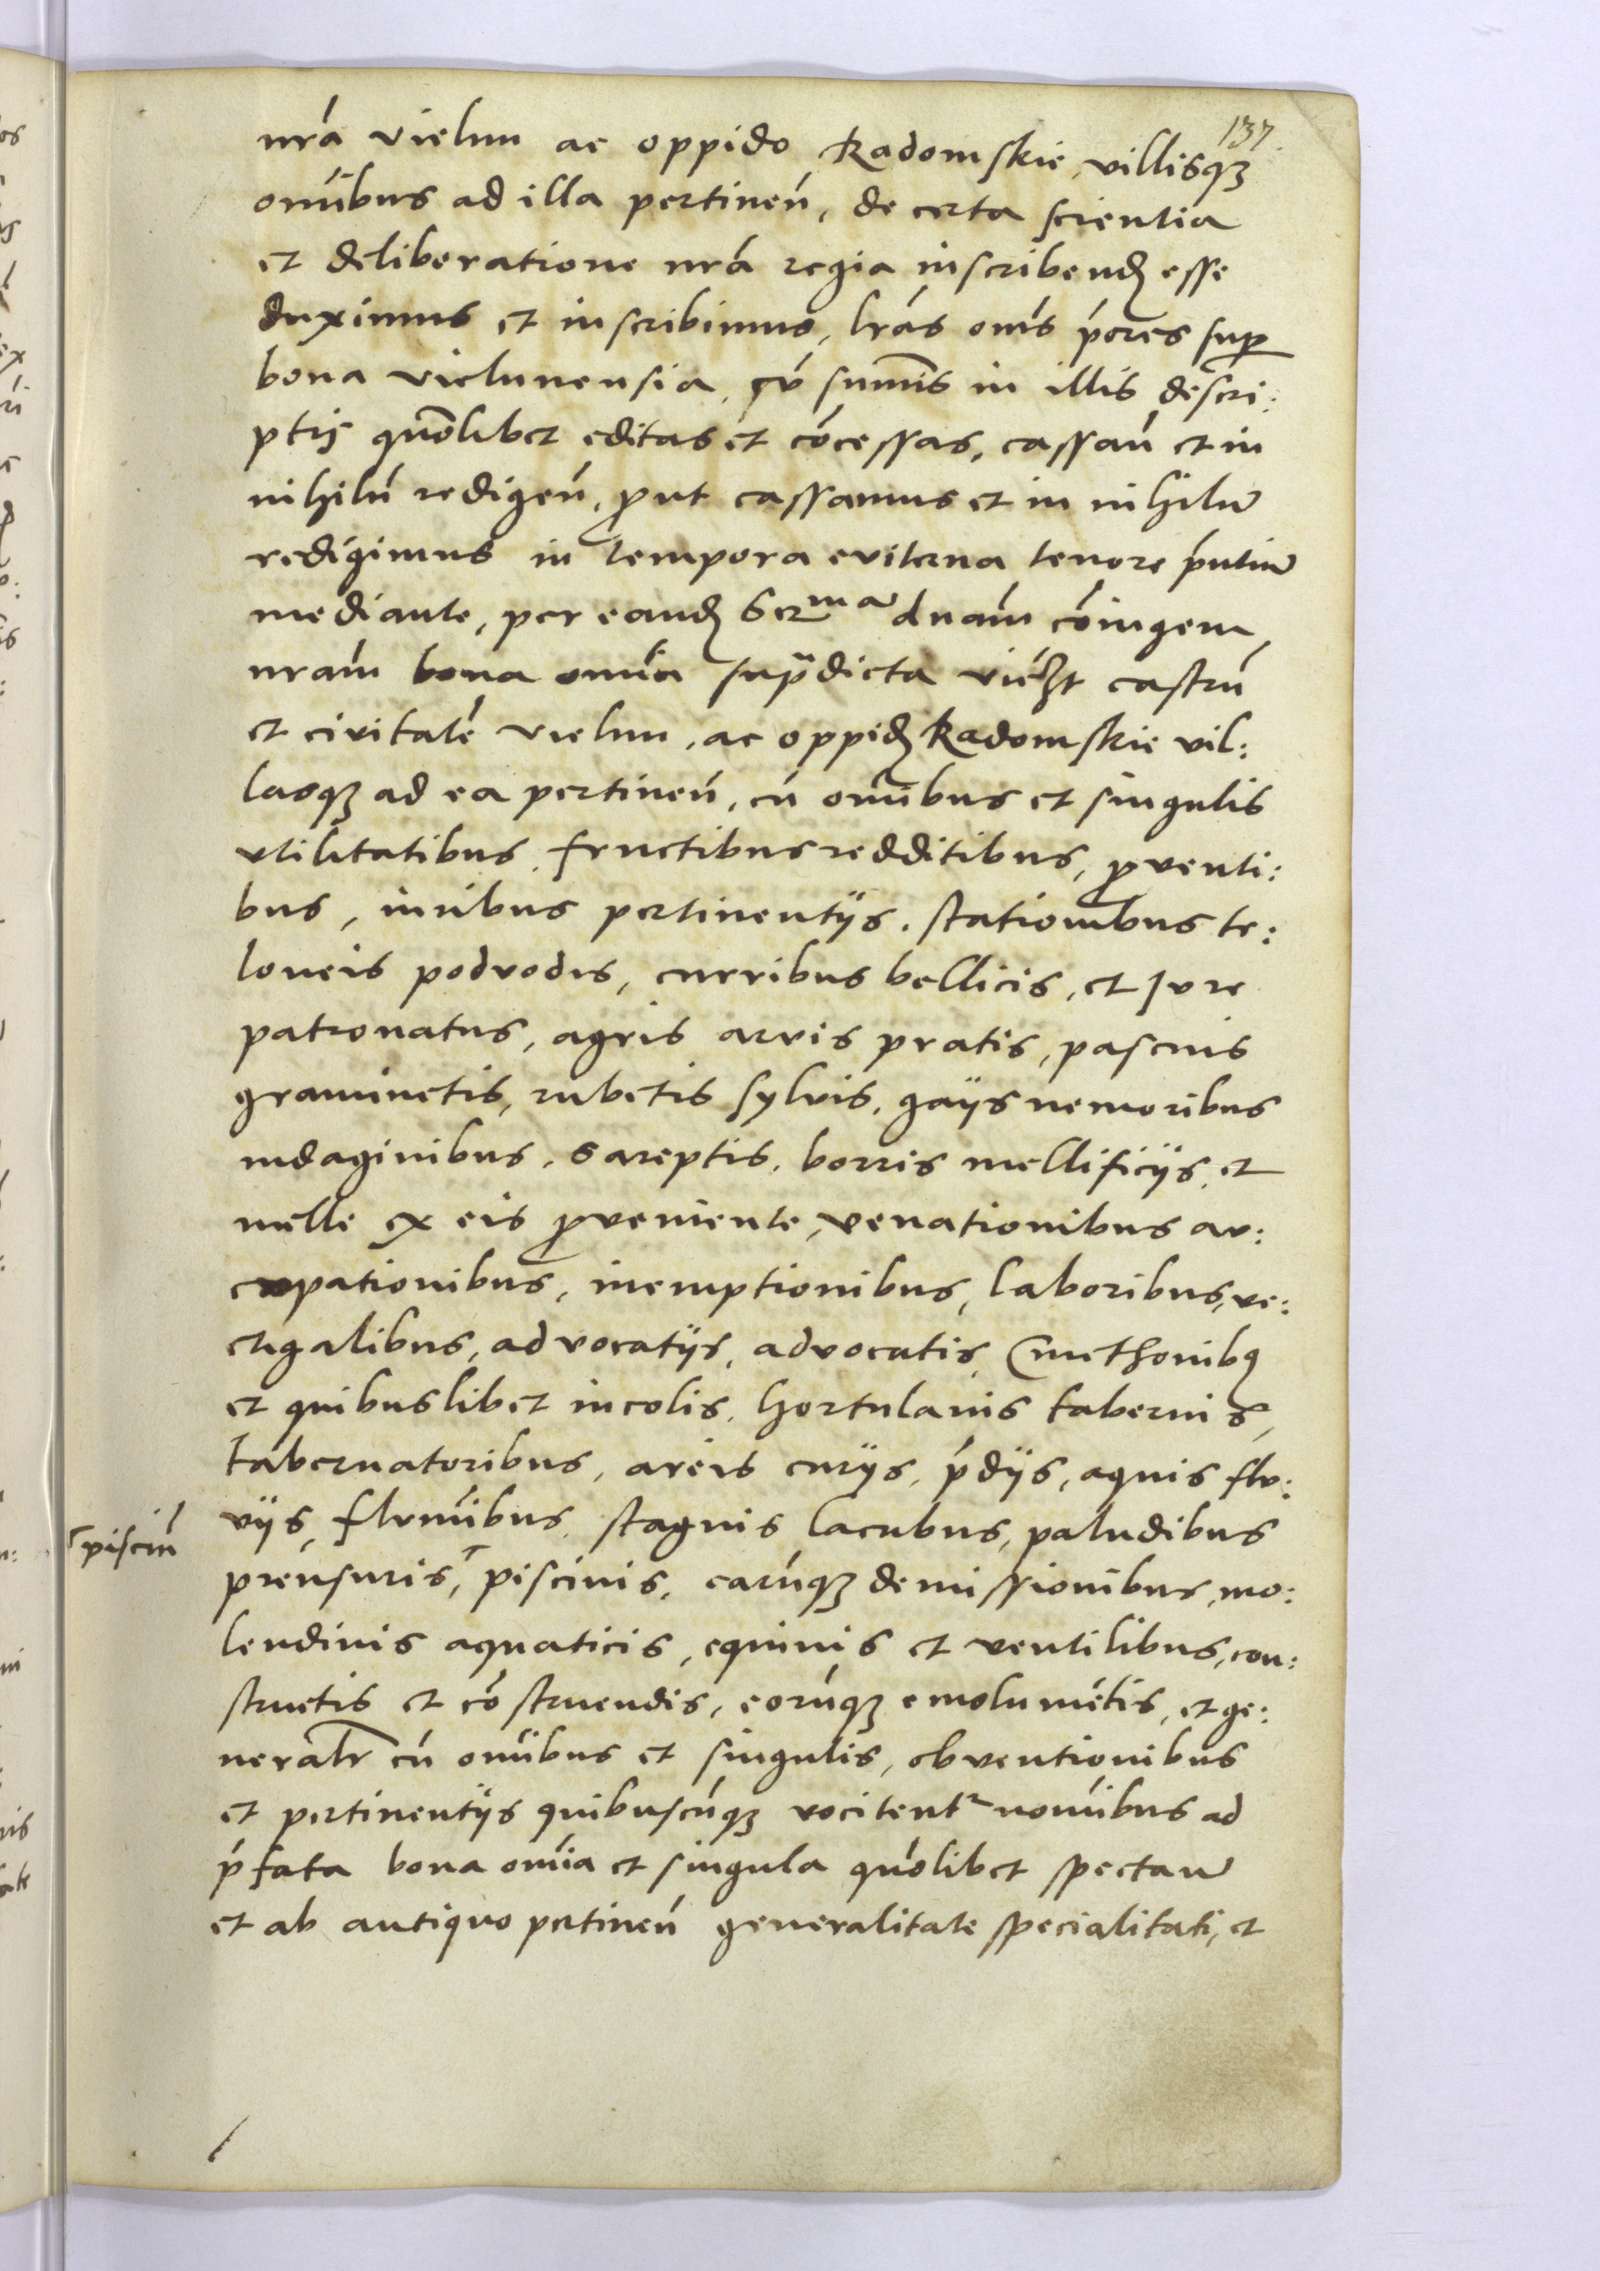 137
nrá vielun ac oppido Radomskie villisqꝫ
omībus ad illa pertineń, de certa scientia
et deliberatione nrá regia inscribenđ esse
duximus et inscribimus, lrás oms p̄ores sup̱
bona vielunensia, cū summis in illis descri:
ptis quolibet editas et cōcessas, cassań et in
nihilū redigeń, ꝓut cassamus et in nihilū
redigimus in tempora eviterna tenore p̄ntiū
mediante, per eanđ Serᵐᵃ dnám cōiugem
nrám bona omīa sup̄dicta vićꝫt castrū
et civitatē vielun, ac oppiđ Radomskie vil:
lasqꝫ ad ea pertineń, cū omībus et singulis
vtilitatibus, fructibus redditibus, ꝓventi:
bus, iuribus pertinentÿs, stationibus te:
loneis podvodis, curribus bellicis, et Jure
patronatus, agris arvis pratis, pascuis
graminetis, rubetis sylvis, gaÿs nemoribus
indaginibus, sareptis, borris mellificÿs, et
melle ex eis ꝓveniente, venationibus au:
cupationibus, inemptionibus, laboribus, ve:
ctigalibus, advocatÿs, advocatis, Cmethonibꝰ
et quibuslibet incolis, hortulanis tabernis,
tabernatoribus, areis curÿs, p̄dÿs, aquis flu:
vÿs, flumībus, stagnis lacubus, paludibus
⸢pisciū
prensuris,⸢ piscinis, earūqꝫ demissionibus, mo:
lendinis aquaticis, equinis et ventilibus, con:
structis et cōstruendis, eorūqꝫ emolumētis, et ge:
neralr̄ cū omībus et singulis, obventionibus
et pertinentÿs quibuscūqꝫ vocitentʳ nomībus ad
p̄fata bona omīa et singula quōlibet spectań
et ab antiquo pertineń generalitate specialitati, et